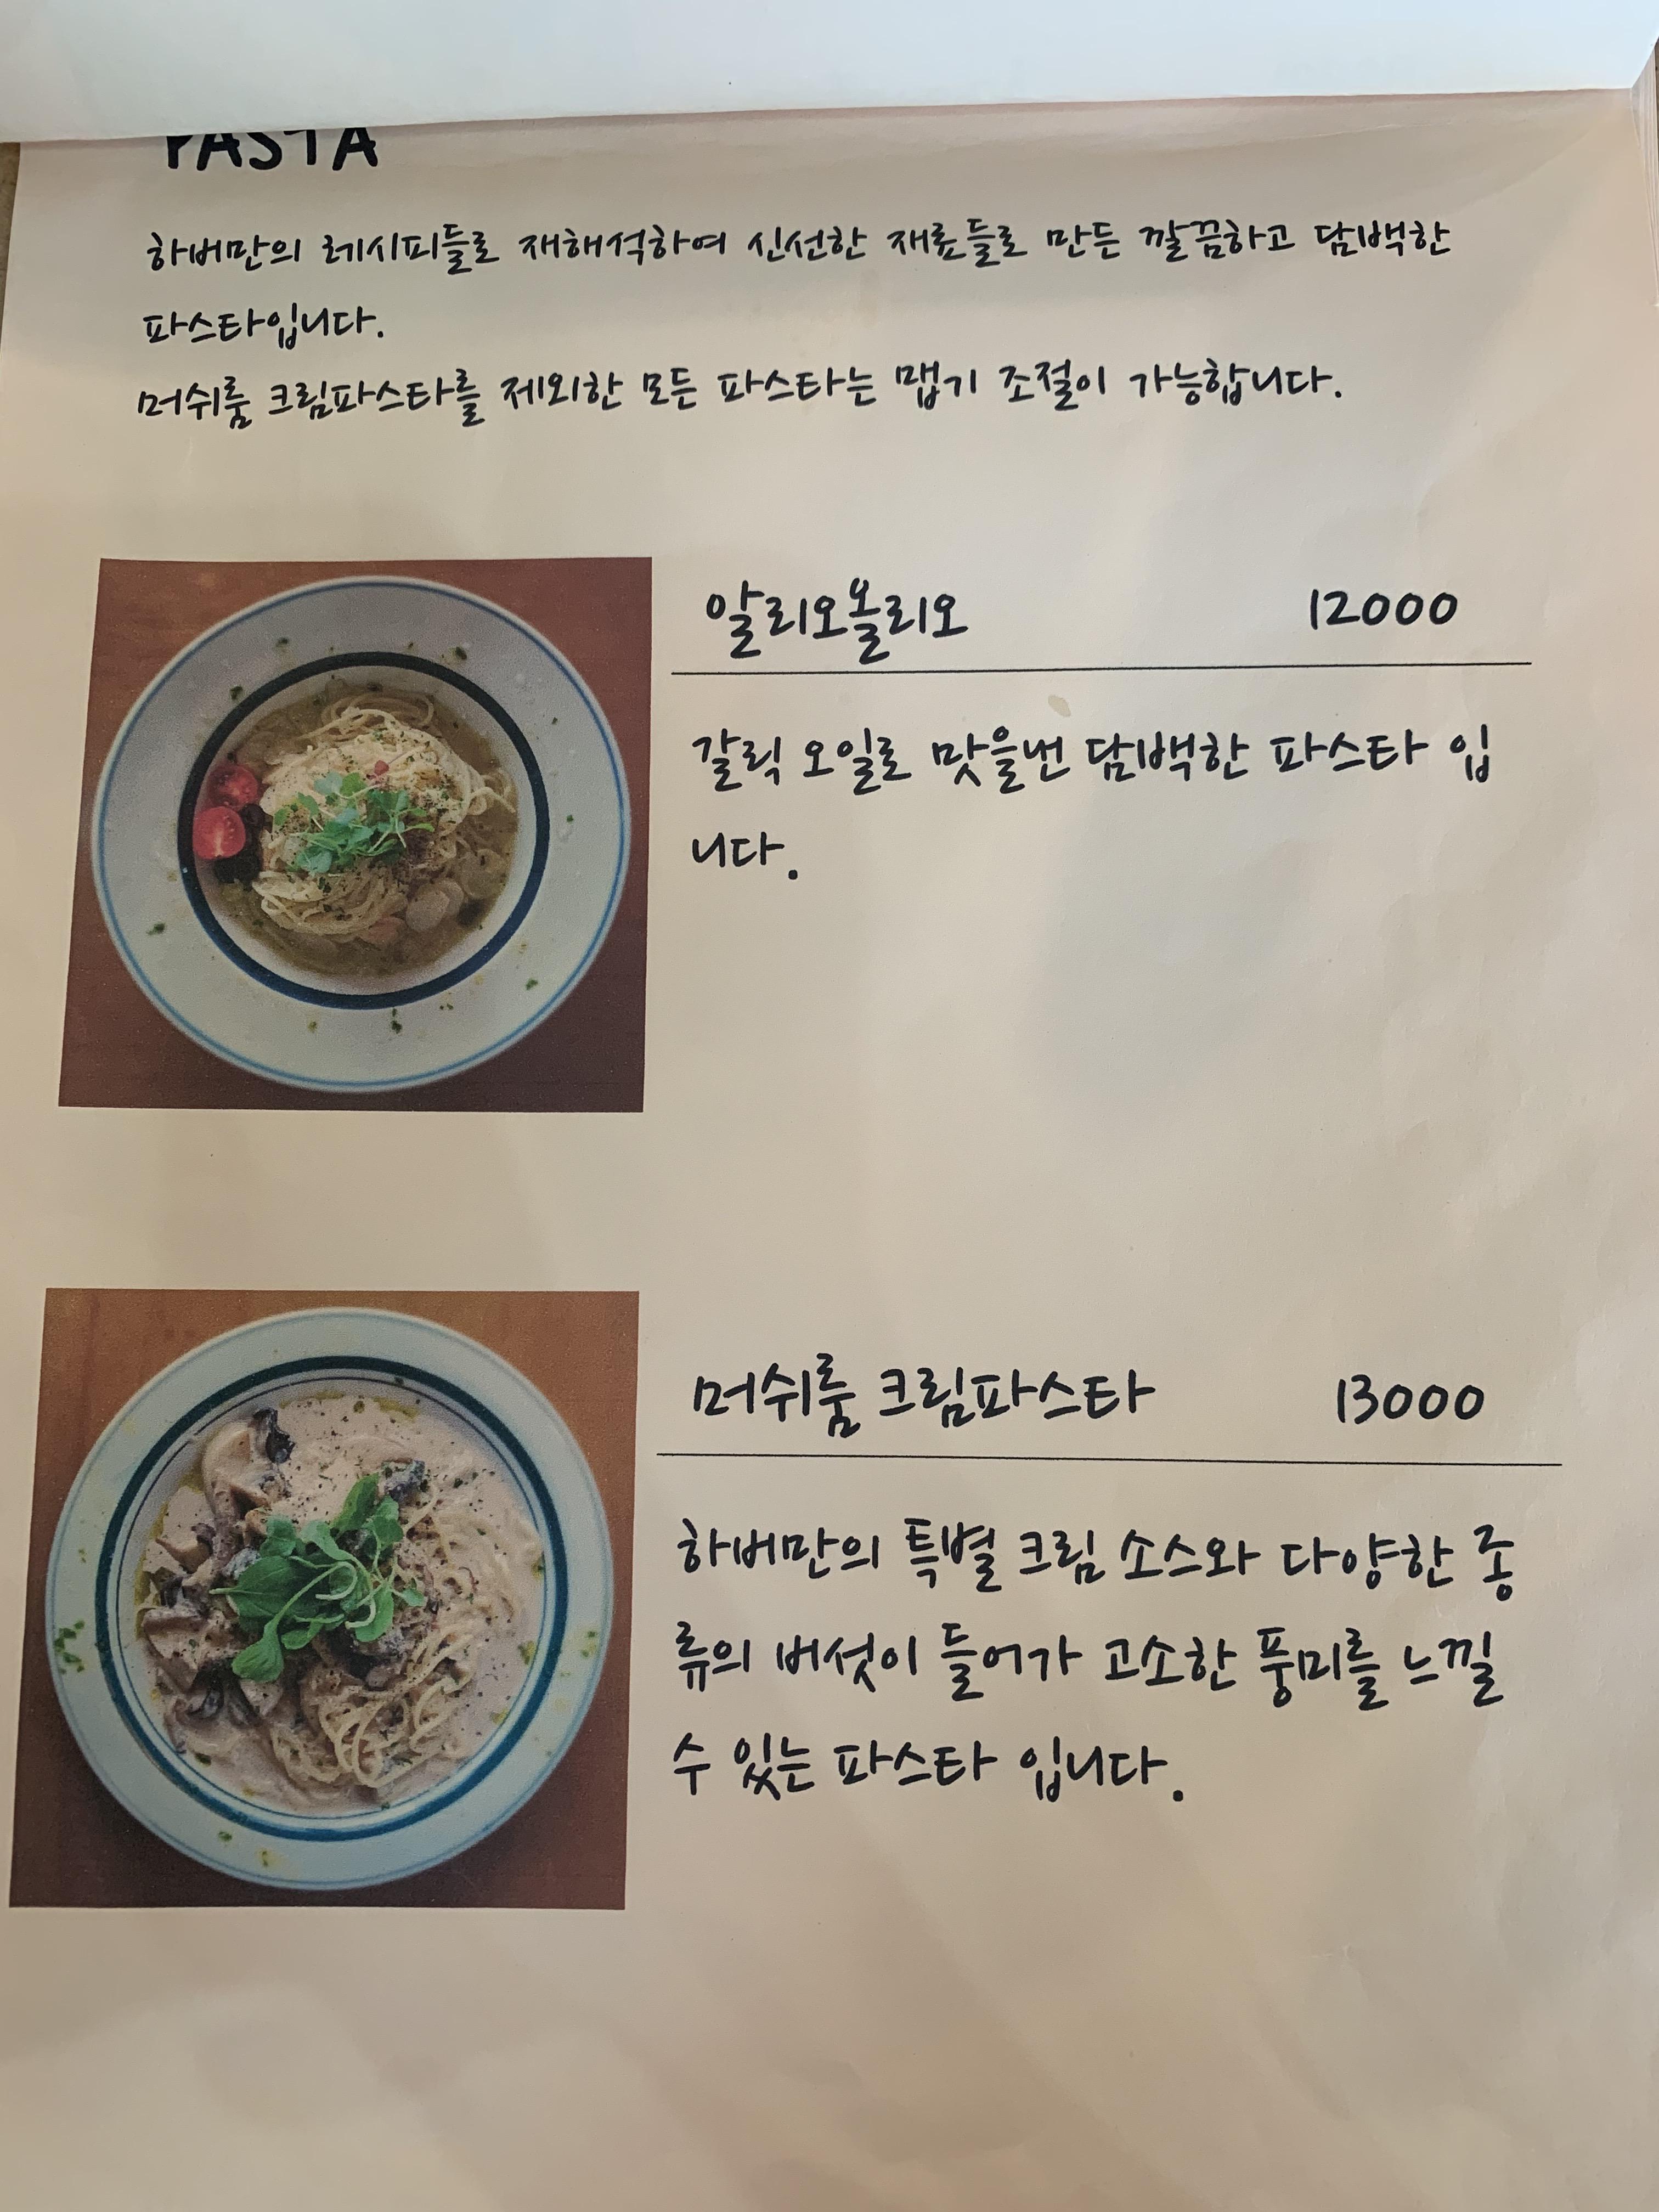 PASTA
하버만의 레시피들로 재해석하여 신선한 재료들로 만든 깔끔하고 담백한
파스타입니다.
머쉬룸 크림파스타를 제외한 모든 파스타는 맵기 조절이 가능합니다.
알리오올리오 12000
갈릭 오일로 맛을낸 담백한 파스타 입
니다.
머쉬룸 크림파스타 13000
하버만의 특별 크림 소스와 다양한 종
류의 버섯이 들어가 고소한 풍미를 느낄
수 있는 파스타 입니다.